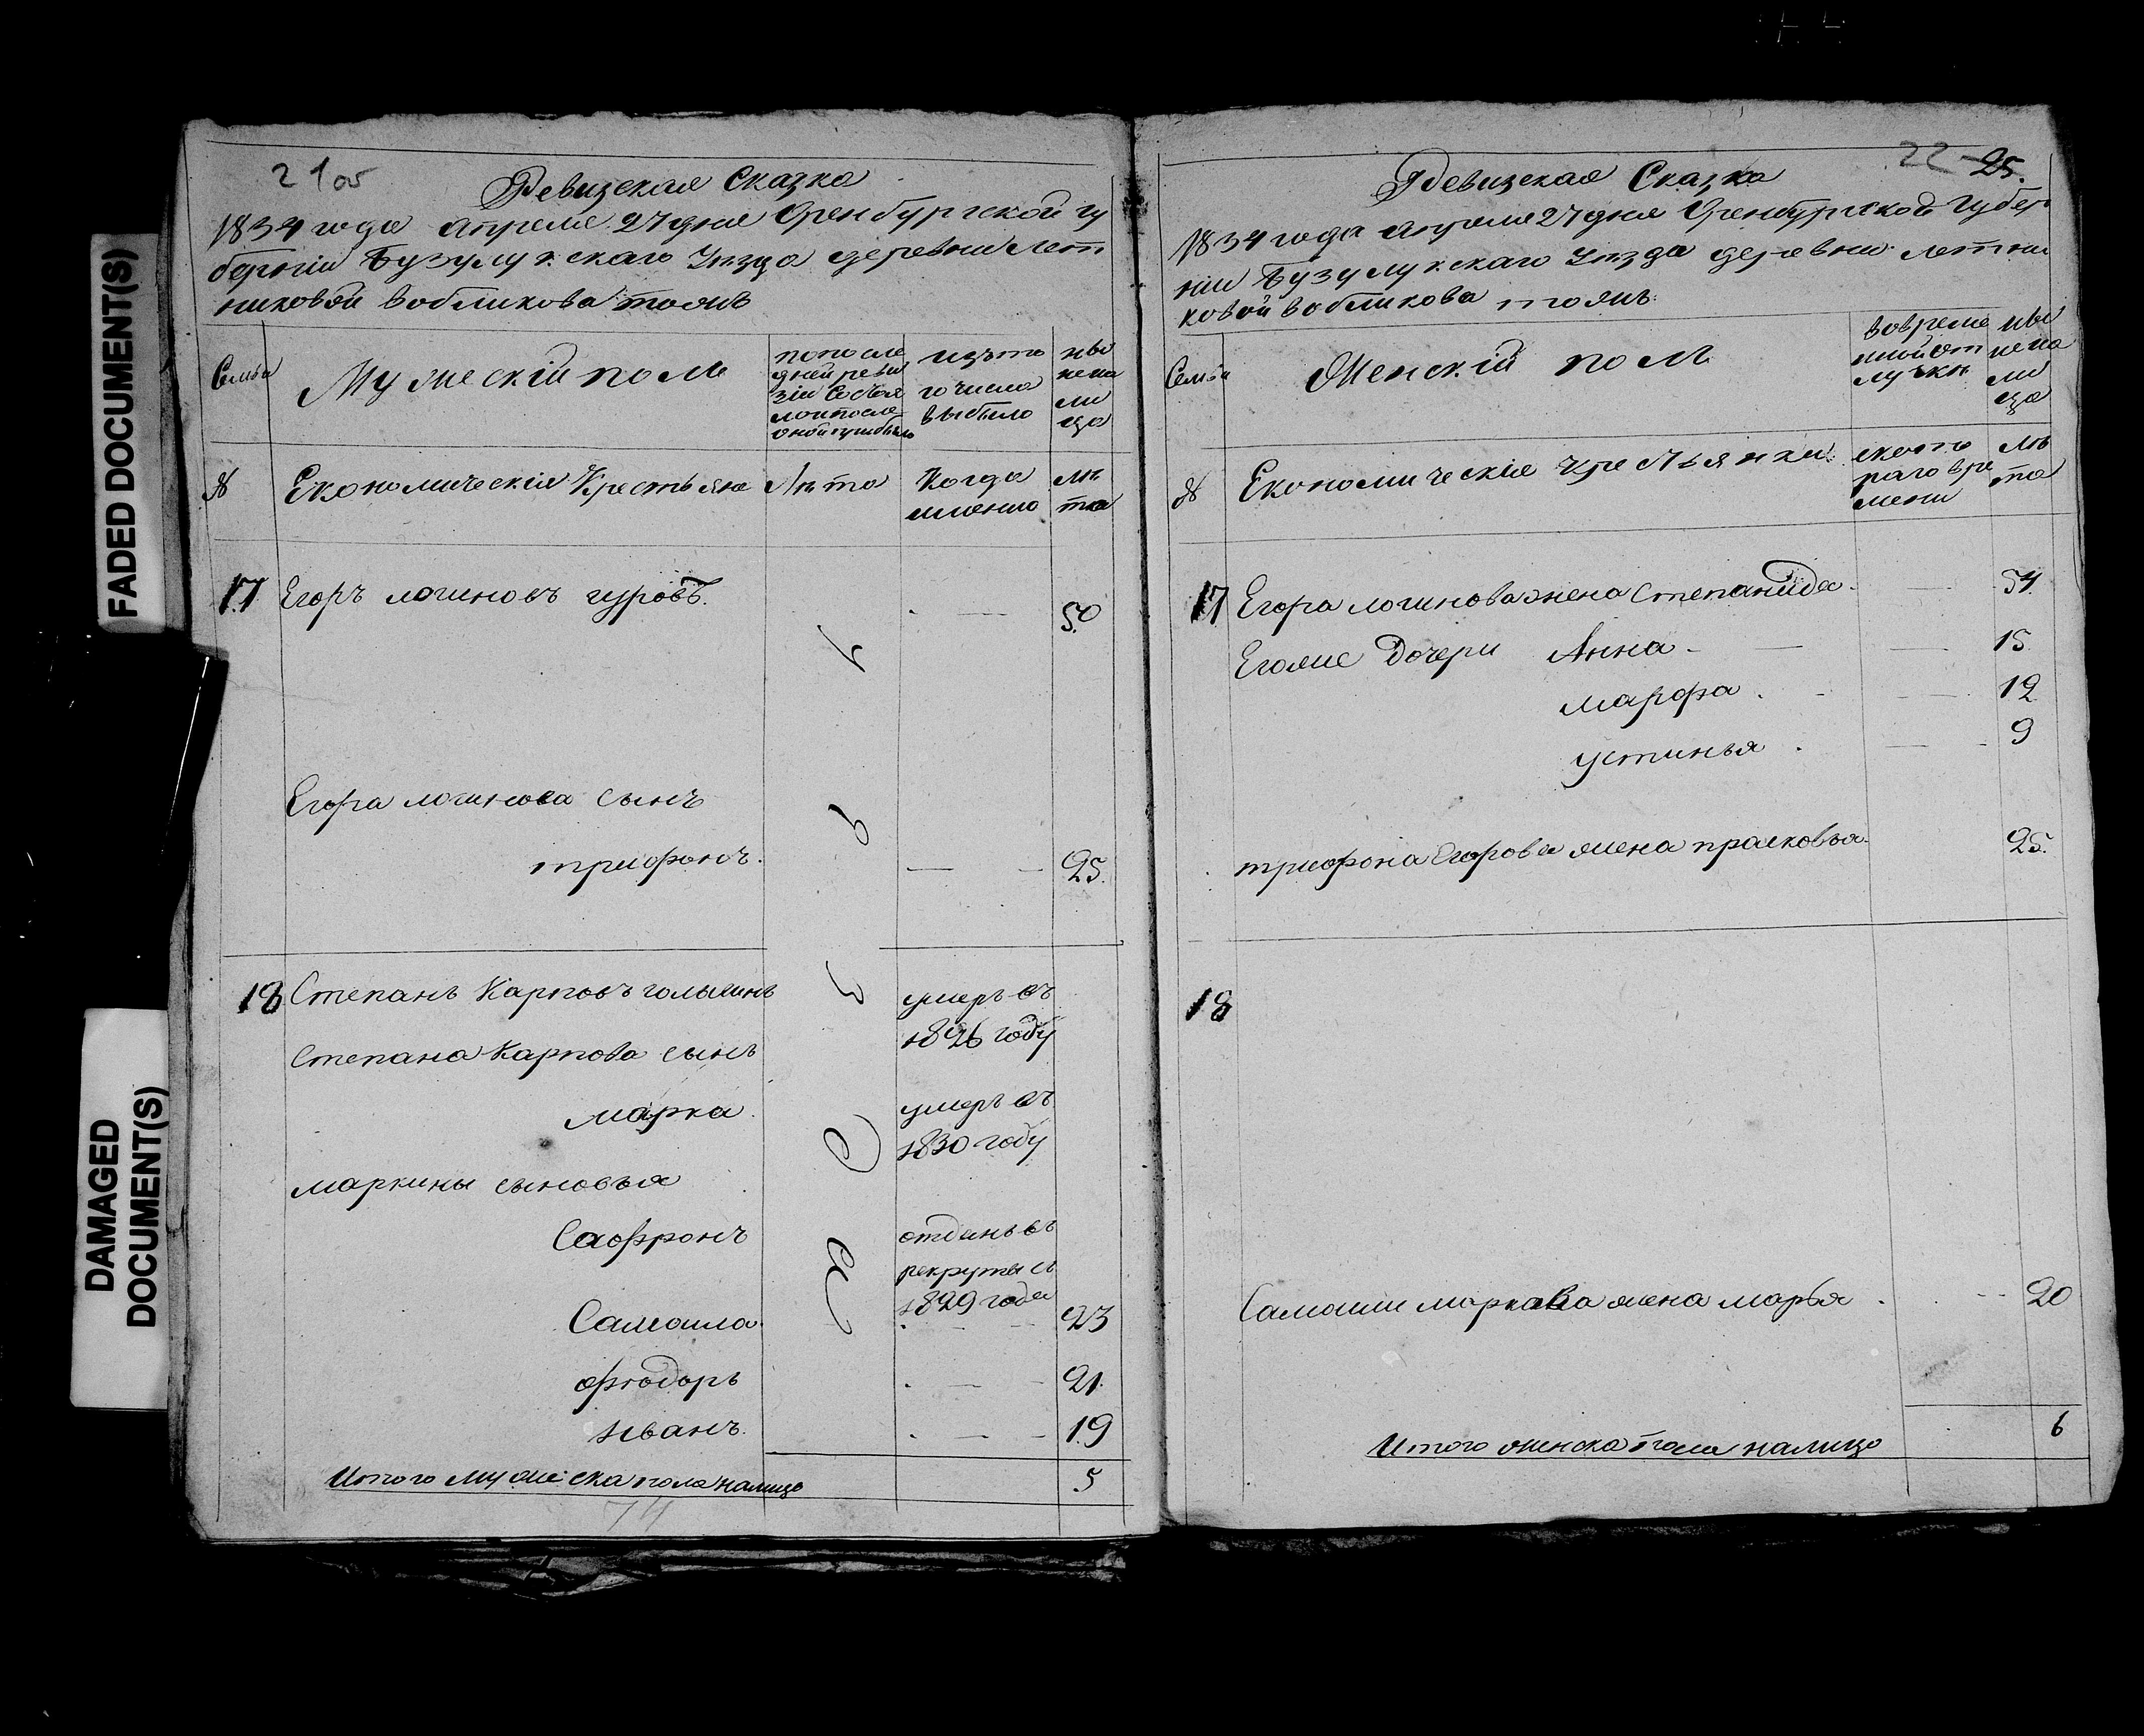 FADED DOCUMENT(S)
DAMAGED
DOCUMENT(S)
21 об
Ревизская Сказка
1834 года апреля 27 дня Оренбургской гу
берніи Бузулукскаго уѣзда деревни Лет
никовой Вобликова тожъ
Семьи
Мужескій полъ
попосле
дней реви
зіи состоя
ло и после
оной прибыло
изъ то
го числа
выбыло
ны
не на
ли
цо
№
Економическія Крестьяне
Лѣта
Когда
имянно
лѣ
та
17
Егоръ логиновъ гуровъ.
50
Егора логинова сынъ
трифонъ.
25.
18
Степанъ Карповъ
умеръ въ
1826 году
Степана Карпова сынъ
марка.
умеръ въ
1830 году
маркины сыновья
Сафронъ
отданъ въ
рекруты съ
1829 года
Самоила
23
фюдоръ
21.
иванъ.
19
Итого мужеска пола налицо
5
74
22
25.
Ревизская Сказка
1834 года апреля 27 дня Оренбургской Губер
ніи Бузулукскаго уѣзда деревни летни
ковой вобликова тожъ.
Семьи
Женскій полъ
вовреме
нной от
лучкѣ
ны
не на
ли
цо
№
Економическія крестьянки.
ското
раго вре
мени
лѣ
та
17
Егора логинова жена Степанида
54.
Егоже Дочери Анна
15
марфа.
12
устинья.
9
трифона Егорова жена прасковья.
25.
18
Самоили маркава жена марья.
20
Итого женска пола налицо
6